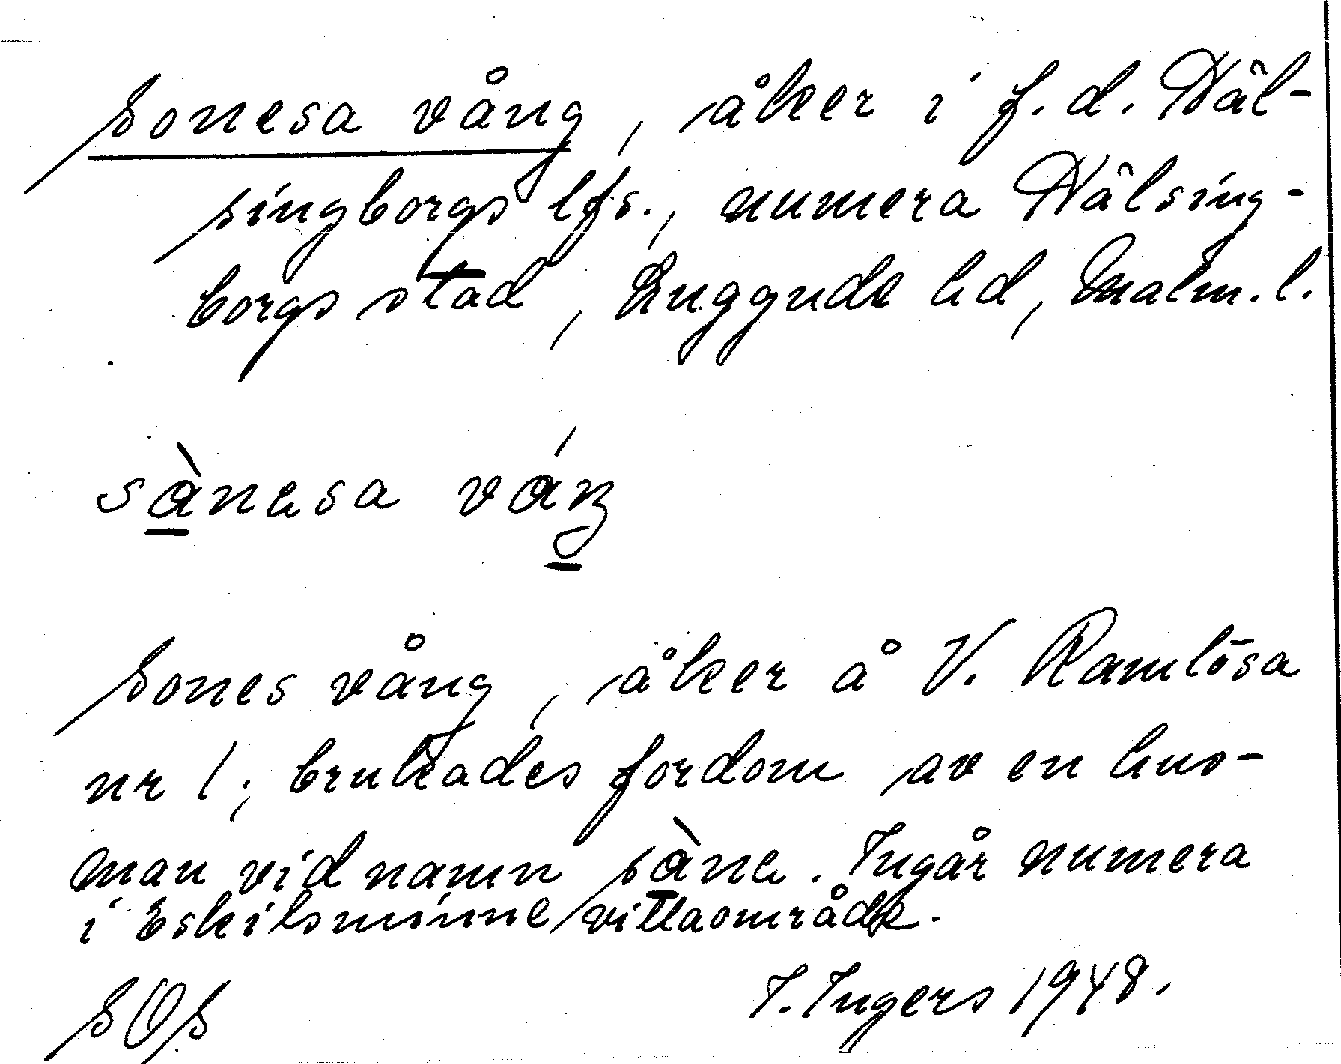 Sonesa vång, åker i f.d. Häl-
singborgs lfs., numera Hälsing-
borgs stad, Luggude hd, Malm. l.
sànəsa váŋ
Sones vång, åker å V. Ramlösa
nr 1; brukades fordom av en hus-
man vid namn sànə. Ingår numera
i Eskilsminne villaområde.
SOS
I. Ingers 1948.